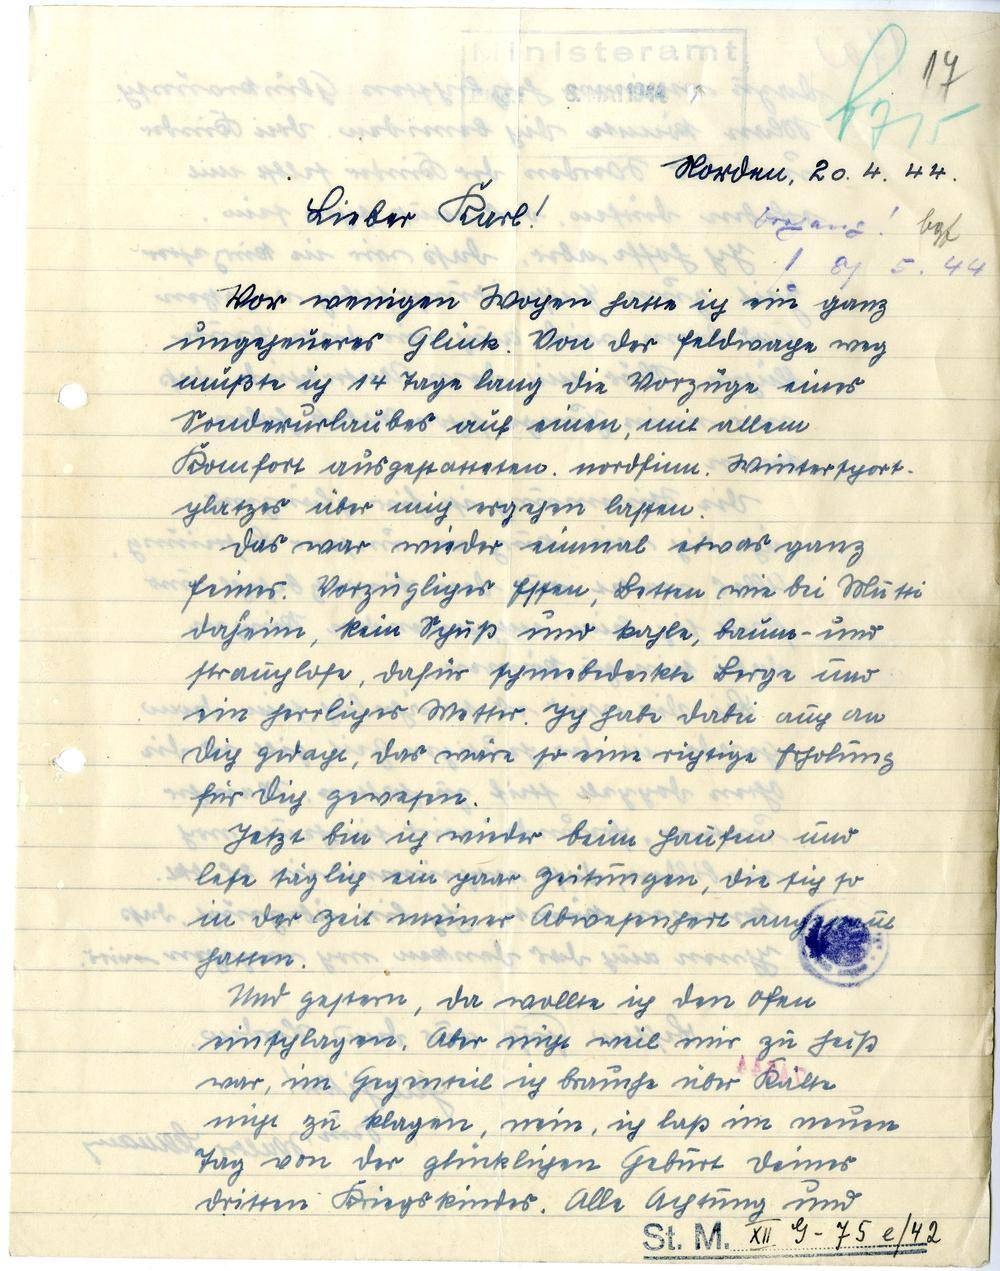 Ministeramt
17
Norden, 20. 4. 44.
Lieber Karl!
5. 44
Vor wenigen Wochen hatte ich ein ganz
ungeheueres Glück. Von der Feldwache weg
mußte ich 14 Tage lang die Vorzüge eines
Sonderurlaubes auf einen, mit allem
Komfort ausgestatteten. nordfinn. Wintersport-
platzes über mich ergehen lassen.
Das war wieder einmal etwas ganz
feines. Vorzügliches Essen, Betten wie bei Mutti
daheim, kein Schuß und kahle, baum- und
strauchlose, dafür schneebedeckte Berge und
ein herrliches Wetter. Ich habe dabei auch an
Dich gedacht, das wäre so eine richtige Erholung
für Dich gewesen.
Jetzt bin ich wieder beim Haufen und
lese täglich ein paar Zeitungen, die sich so
in der Zeit meiner Abwesenheit
hatten.
Und gestern, da wollte ich den Ofen
einschlagen. Aber nicht weil mir zu heiß
war, im Gegenteil ich brauche über Kälte
nicht zu klagen, nein, ich laß im neuen
Tag von der glücklichen Geburt Deines
dritten Kriegskindes. Alle Achtung und
St. M. XII G - 75 e/42